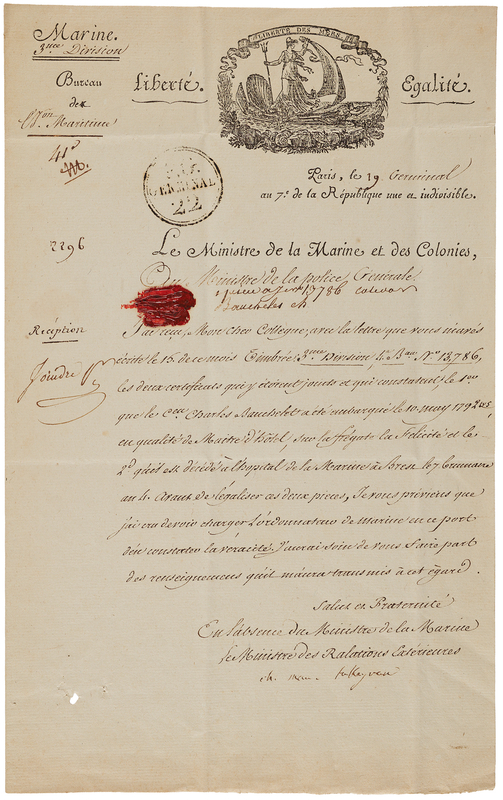 Marine.
3me Division
Bureau
des
Con Maritime
LIBERTÉ DES MERS
Liberté.
Egalité.
Paris, le 19 Germinal
au 7e. de la République une et indivisible.
GERMINAL
22
2296
Le Ministre de la Marine et des Colonies,
Au Ministre de la police Générale
13786
Réception
J'ai reçu, Mon cher Collegue, avec la lettre que vous m'avés
Joindre
écrite le 15. de ce mois Timbrée 3me Division, Bau. No. 13,786,
les deux certificats qui y étoient joints et qui constatent, le 1er
que le Cen. Charles a été embarqué le 10 may 1792
en qualité de Maitre d'hôtel, sur la frégate la Felicité et le
2d. qu'il est décédé à l'hopital de la Marine à Brest le 7 brumaire
an 4. Avant de légaliser ces deux pieces, Je vous préviens que
j'ai cru devoir charger L'ordonnateur de marine en ce port
d'en constater la véracité. J'aurai soin de vous faire part
des renseignemens qu'il m'aura transmis à cet égard.
Salut et Fraternité
En l'absence du Ministre de la Marine
Le Ministre des Relations Extérieures
ch. mau. talleyrand